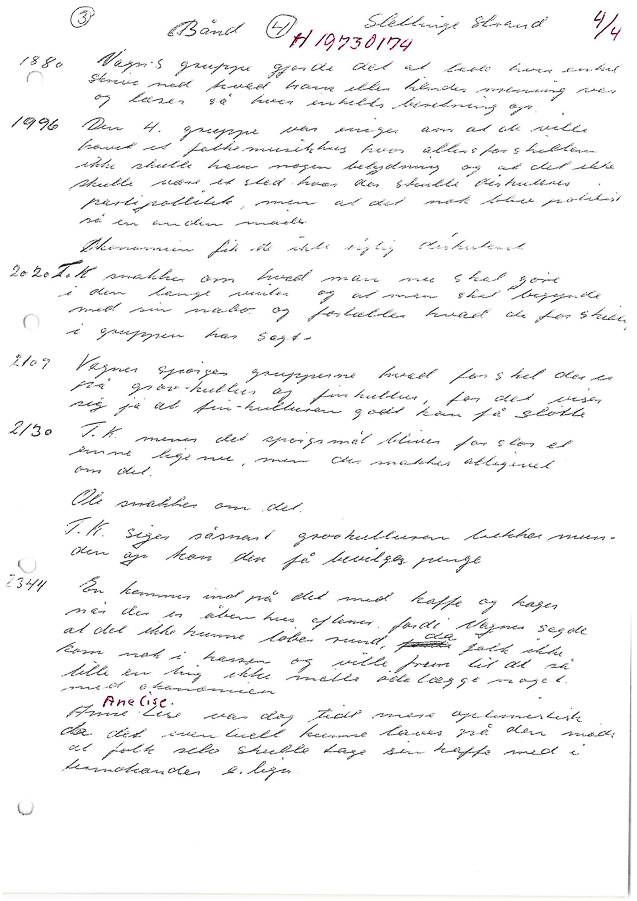 3 Bånd 4 Slettinge Strand 4/4
H 19730174
1880 Vagn's gruppe gjorde det at lade hver enkel
skrive ned hvad hans eller hendes mening var
og læser så hver enkelts beretning op.
1996 Den 4. gruppe var enige om at de ville
have et folkemusikhus hvor aldersforskellen
ikke skulle have nogen betydning og at det ikke
skulle være et sted hvor der skulle diskuteres
partipolitik, men at det nok blev politisk
på en anden måde
Økonomien fik de ikke rigtig diskuteret
2020 T.K snakker om hvad man nu skal gøre
i den lange vinter og at man skal begynde
med sin nabo og fortæller hvad de forskellige
i gruppen har sagt.
2109 Vagner spørger grupperne hvad forskel der er
på grov-kultur og finkultur, for det viser
sig jo at fin-kulturen godt kan få støtte
2130 T.K. mener det spørgsmål bliver for stor et
emne lige nu, men der snakkes alligevel
om det.
Ole snakker om det.
T.K. siger såsnart grovkulturen lukker mun-
den op kan den få bevilget penge
2344 En kommer ind på det med kaffe og kager
når der er åben hus aftener. fordi Vagner sagde
at det ikke kunne løbe rund, da folk ikke
kom nok i kassen og ville frem til at så
lille en ting ikke måtte ødelægge noget
med økonomien
Anelise.
Anne Lise var dog tidt mere optimistisk
da det eventuelt kunne laves på den måde
at folk selv skulle tage sin kaffe med i
termokander o. lign